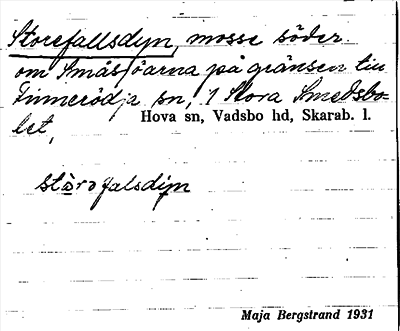 Storefallsdyn, mosse söder
om Småsjöarna på gränsen till
Finnerödja sn, 1 Stora Smedsbo-
let,
Hova sn, Vadsbo hd, Skarab. l.
stòrofalsdyn
Maja Bergstrand 1931